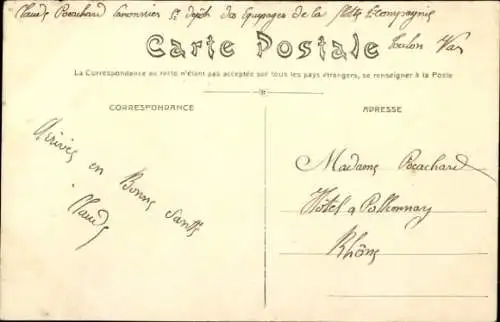 Claude Pocachard Canonnier 5e dépôt des Equipages de la flotte 2e compagnie
Toulon Var
Carte Postale
La Correspondance au recto n'étant pas acceptée par tous les pays étrangers, se renseigner à la Poste
CORRESPONDANCE
ADRESSE
Arrivés en Bonne Santé
Claude
Madame Pocachard
Hôtel a Pollionnay
Rhône